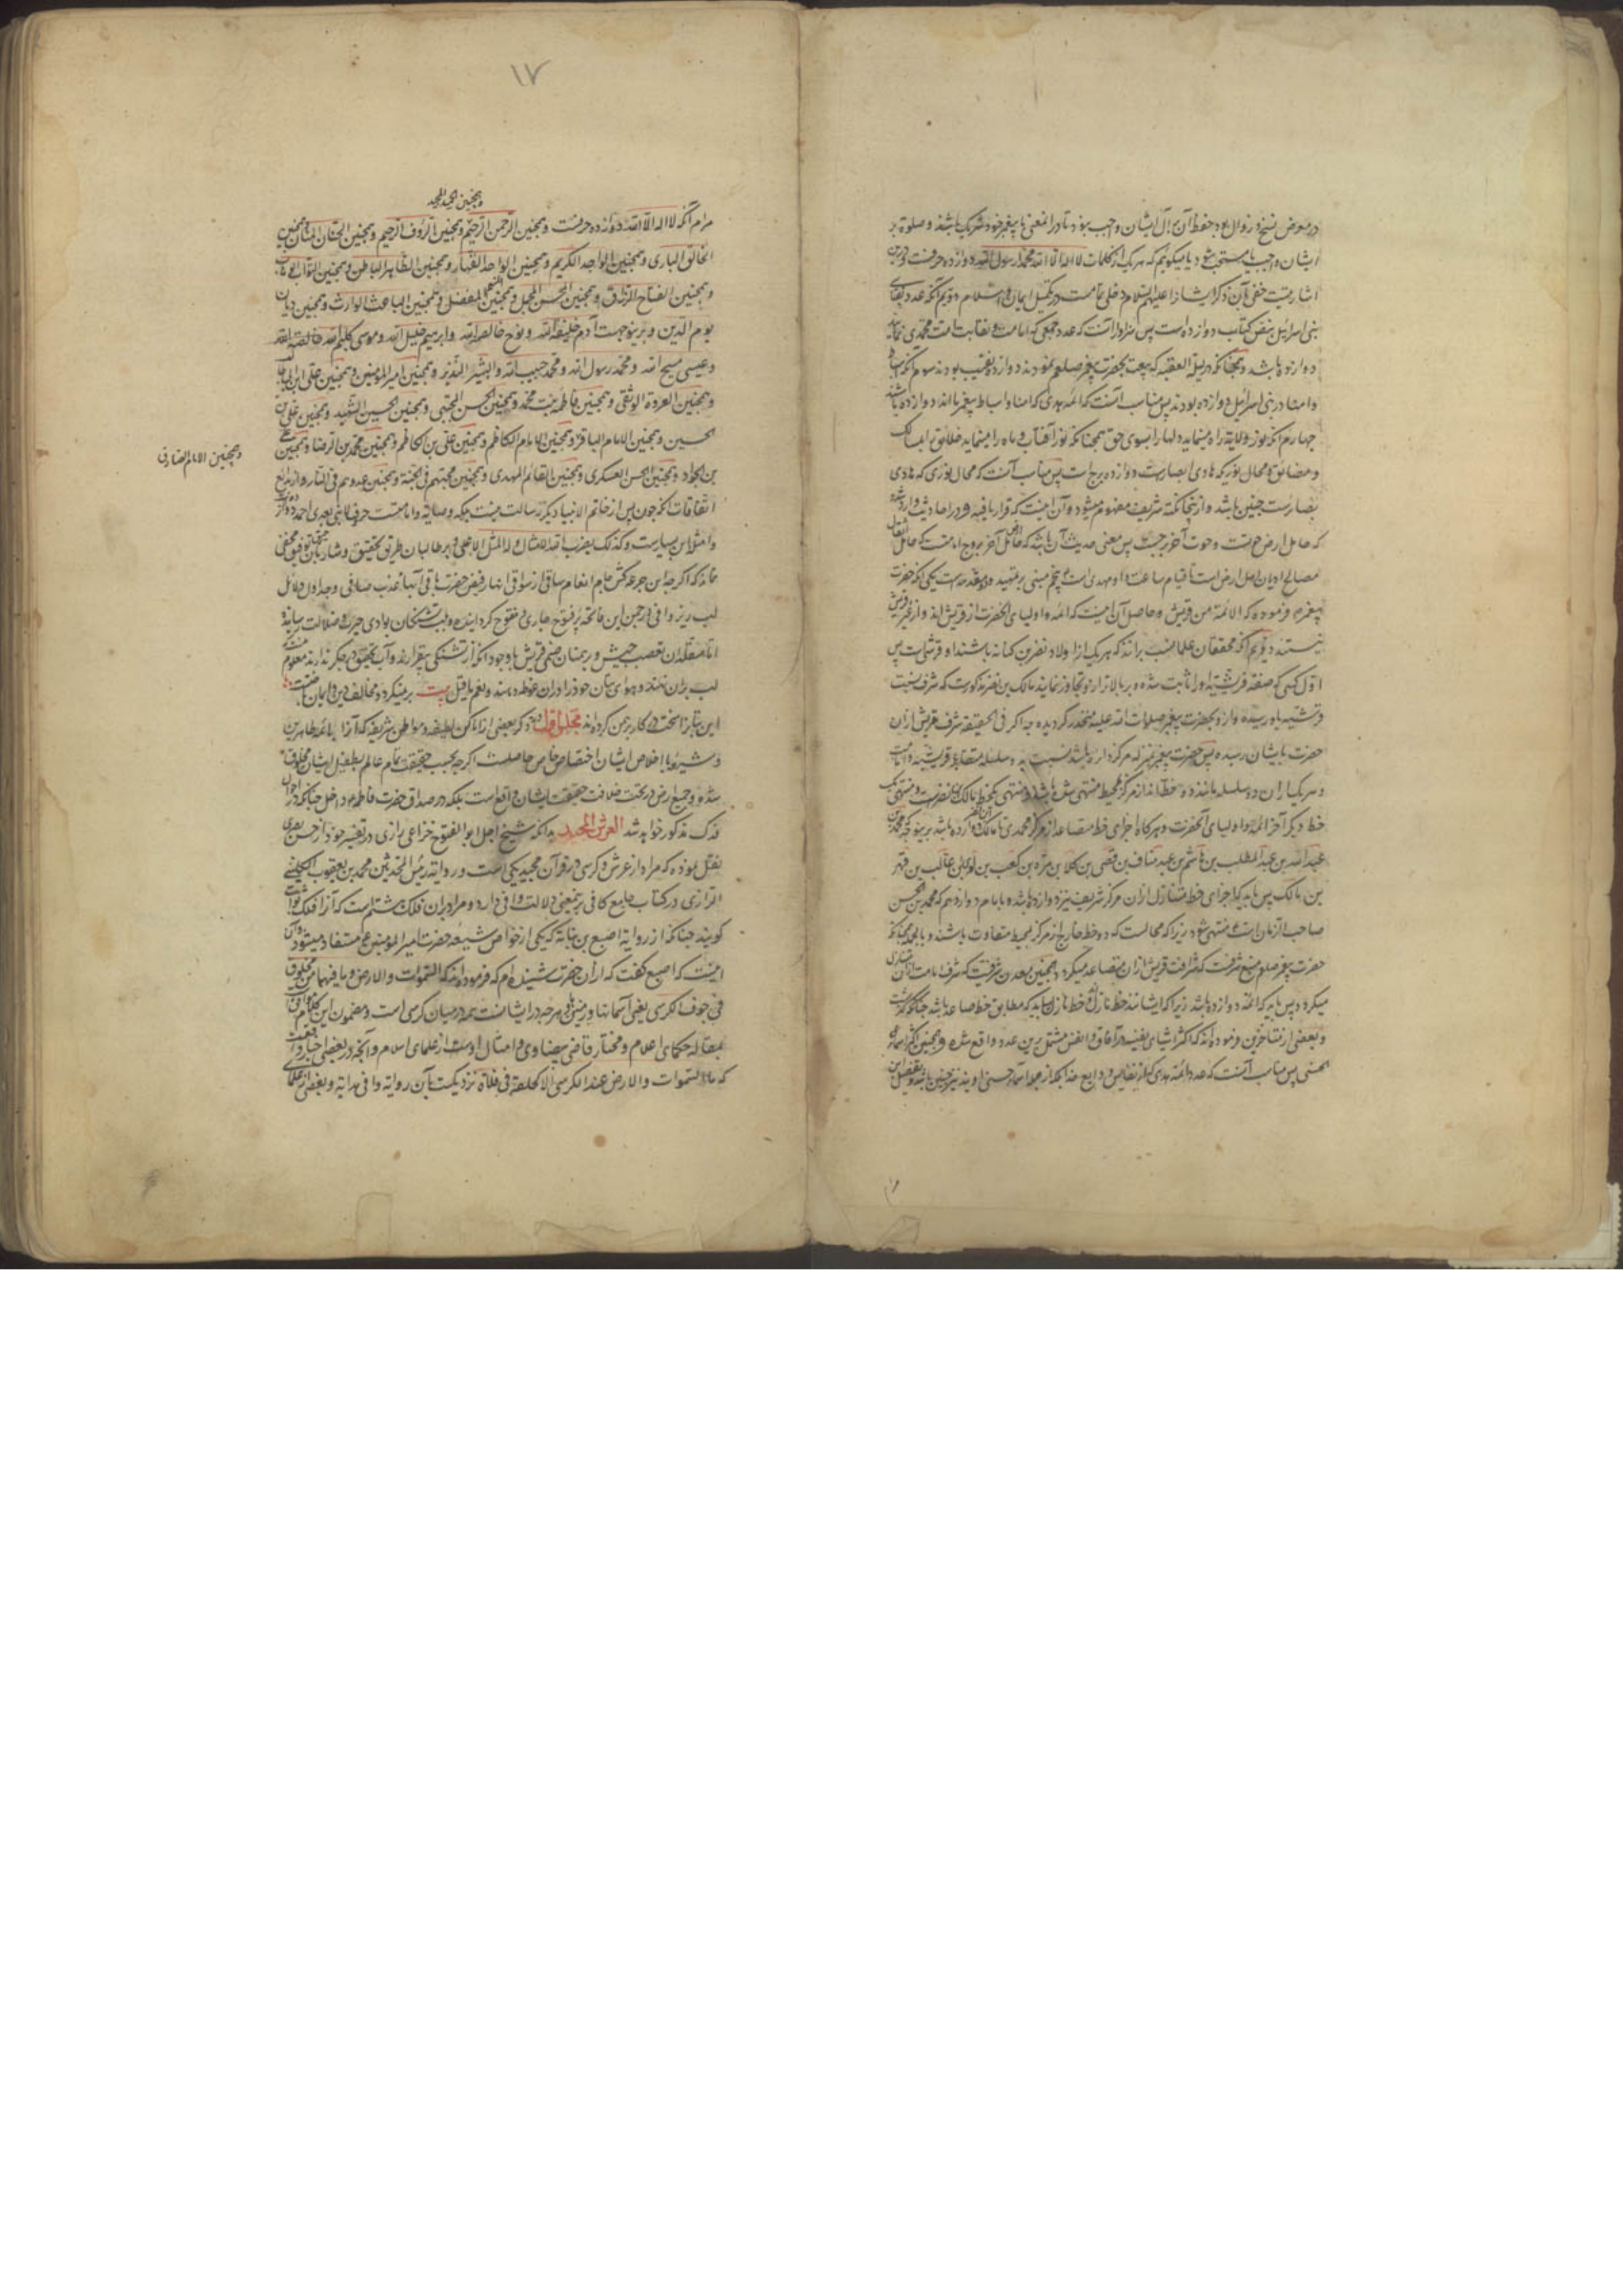 در معرض نسخ و زوال بود حفظ آن بر آل ایشان واجب نبود تا در این معنی با پیغمبر خود شریک باشند و صلوة بر
ایشان واجب یا مستحب شود یا میکوئیم که هر یک از کلمات لا اله الا الله محمد رسول الله دوازده حرفست و درین
اشارتیست خفی بآن که ذکر ایشانرا علیهم السلام دخلی تمامست در تکمیل ایمان و اسلام دویم آنکه عدد نقبای
بنی اسرائیل بنص کتاب دوازده است پس سزاوار آنست که عدد جمعی که امامت و نقابت امت محمدی نمایند
دوازده باشد و همچنانکه در لیلة العقبه که بیعت بحضرت پیغمبر صلعم نمودند دوازده نقیب بودند سوم آنکه اسباط
در بنی اسرائیل دوازده بودند پس مناسب آنست که ائمه هدی که امنا و اسباط پیغمبر ما اند دوازده باشند
چهارم آنکه نور ولایة راه مینماید دلها را بسوی حق همچنانکه نور آفتاب و ماه راه مینماید خلایق را بمسالک
و محال نوریکه هادی ابصارست دوازده برج است پس مناسب آنست که محال نوری که هادی
بصایرست چنین باشد و از اینجا نکتة شریف مفهوم میشود و آن اینست که قرار یافته و در احادیث وارد شده
که حامل ارض حوتست و حوت آخر برجست پس معنی حدیث آن باشد که حامل ارض آخر بروج امامت که حامل اثقال
مصالح ادیان اهل ارض است تا قیام ساعت و او مهدی است پنجم مبنی بر تمهید دو مقدمه است یکی آنکه حضرت
پیغمبر فرموده که الائمة من قریش و حاصل آن اینست که ائمه و اولیای آنحضرت از قریش اند و از غیر قریش
نیستند دویم آنکه محققان علما نسب برانند که هر یک از اولاد نضر بن کنانه باشند او قرشی است پس
اول کسی که صفة قرشیة او را ثابت شده و بر بالاتر از او تجاوز ننماید مالک بن نضر مذکورست که شرف نسبت
قرشیه باو رسیده و از و بحضرت پیغمبر صلوات الله علیه منحدر کردیده چه اکر فی الحقیقه شرف قریش از آن
حضرت بایشان رسیده پس حضرت پیغمبر بمنزله مرکز دایره باشد نسبت به دو سلسله متقابله قرشیه و امامت
و هر یک از آن دو سلسله مانند دو خط اند از مرکز بمحیط منتهی شوند
خط دیکر آخر ائمه و اولیای آنحضرت و هر کاه اجزای خط متصاعد از مرکز محمدی تا مالک بن النضر دوازده باشد برینوجه که محمد بن
عبد الله بن عبد المطلب بن هاشم بن عبد مناف بن قصی بن کلاب بن مره بن کعب بن لوی بن غالب بن فهر
بن مالک پس باید که اجزای خط متنازل از آن مرکز شریف نیز دوازده باشد و بامام دوازدهم که محمد بن الحسن
صاحب الزمان است منتهی شود زیرا که محالست که دو خط خارج از مرکز بمحیط متفاوت باشند و بالجمله چنانکه
حضرت پیغمبر صلعم منبع شرفست که شرافت قریش از آن متصاعد میکردد همچنین معدن شرفیست که شرف امامت از آن متنازل
میکردد پس باید که ائمه دوازده باشد زیرا که ایشانند خط نازل و خط نازل باید که مطابق خط صاعد باشد چنانکه کذشت
و بعضی از متاخرین فرموده اند که اکثر اشیای نفیسه در آفاق و انفس مشتمل برین عدد واقع شده و همچنین اکثر اسماء
حسنی پس مناسب آنست که عدد ائمه هدی که از نفایس ودایع خدا بلکه از جمله اسماء حسنی اویند نیز چنین باشد و تفصیل این
۱۷
و همچنین الحمید المجید
مرام آنکه لا اله الا الله دوازده حرفست و همچنین الرحمن الرحیم و همچنین الرؤف الرحیم و همچنین الحنان المنان و همچنین
الخالق الباری و همچنین الواجد الکریم و همچنین الواحد القهار و همچنین الظاهر الباطن و همچنین التواب الوهاب
و همچنین الفتاح الرزاق و همچنین المحسن المجمل و همچنین المنعم المفضل و همچنین الباعث الوارث و همچنین دیان
یوم الدین و برینوجهست آدم خلیفة الله و نوح خالصة الله و ابرهیم خلیل الله و موسی کلیم الله
و عیسی مسیح الله و محمد رسول الله و محمد حبیب الله و البشیر النذیر و همچنین امیر المؤمنین و همچنین علی ابن ابیطالب
و همچنین العروة الوثقی و همچنین فاطمه بنت محمد و همچنین الحسن المجتبی و همچنین الحسین الشهید و همچنین علی بن
الحسین و همچنین الامام الباقر و همچنین الامام الکاظم و همچنین علی بن الکاظم و همچنین محمد بن الرضا و همچنین علی
و همچنین الامام الصادق
بن الجواد و همچنین الحسن العسکری و همچنین القائم المهدی و همچنین محبتهم فی الجنة و همچنین عدوهم فی النار و از بدایع
اتفاقات آنکه چون پس از خاتم الانبیا دیکر رسالت نیست بلکه وصایة و امامتست حروف لا نبی بعدی احمد دوازده است
و امثال این بسیارست و کذلک یضرب الله الامثال و له المثل الاعلی و بر طالبان طریق تحقیق و شاربان رحیق توفیق مخفی
نماند که اکرچه این جرعه کش جام انعام ساقی از سواقی انهار فیض حضرت باقی آبها عذب صافی و جداول دلائل
لب ریز وافی در چمن این فاتحه پر فتوح جاری و مفتوح کردانیده و لب تشنکان بوادی حیرت و ضلالت رسانیده
اما مقلدان متعصب حبیش و بریمنان صنمی قریش با وجود آنکه از تشنکی بیقرارند و آب تحقیق در جکر ندارند معلوم نیست که
لب بران نهند و هوای بتان خود را دران غوطه دهند و لنعم ما قیل بیت برمیکردد مخالف دین و ایمان
این بتانرا سخت در کار برهمن کرده اند مجلس اول در ذکر بعضی از اماکن لطیفه و مواطن شریفه که آنرا بائمه طاهرین
و شیعه با اخلاص ایشان اختصاص خاص حاصلست اکرچه بحسب حقیقت تمام عالم بطفیل ایشان مخلوق
شده و جمیع ارض در تحت خلافت حقیقت ایشان واقع است بلکه در صداق حضرت فاطمه داخل چنانکه در احوال
فدک مذکور خواهد شد العرش المجید بدانکه شیخ اجل ابو الفتوح خزاعی رازی در تفسیر خود از حسن بصری
نقل نموده که مراد از عرش و کرسی در قرآن مجید یکی است و روایة رئیس المحدثین محمد بن یعقوب الکلینی
الرازی در کتاب جامع کافی برینمعنی دلالت وافی دارد و مراد بران فلک هشتم است که آنرا فلک ثوابت
کویند چنانکه از روایة اصبغ بن نباتة که یکی از خواص شیعه حضرت امیر المؤمنین ع مستفاد میشود و آن
اینست که اصبغ کفت که از آن حضرت شنیده ام که فرموده اند که السموات و الارض و ما فیهما من مخلوق
فی جوف الکرسی یعنی آسمانها و زمین و هر چه در ایشانست همه در میان کرسی است و مضمون این کلام موافق
بمقاله حکمای اعلام و مختار قاضی بیضاوی و امثال اوست از علمای اسلام و آنچه در بعضی اخبار واقعست
که ما السموات و الارض عند الکرسی الا کحلقة فی فلاة نزدیکست بآن روایة وافی هدایة و بعضی از علمای